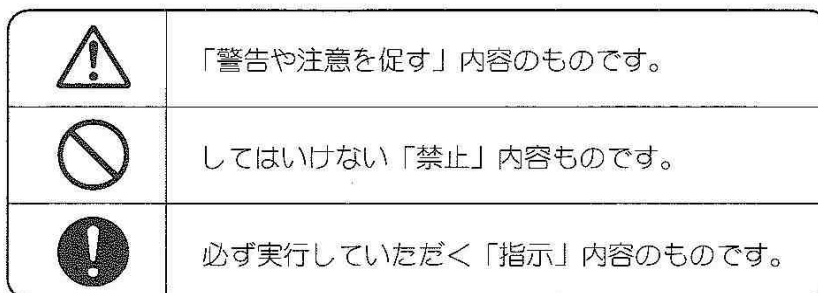 「警告や注意を促す」内容のものです。
してはいけない「禁止」内容ものです。
必ず実行していただく「指示」内容のものです。